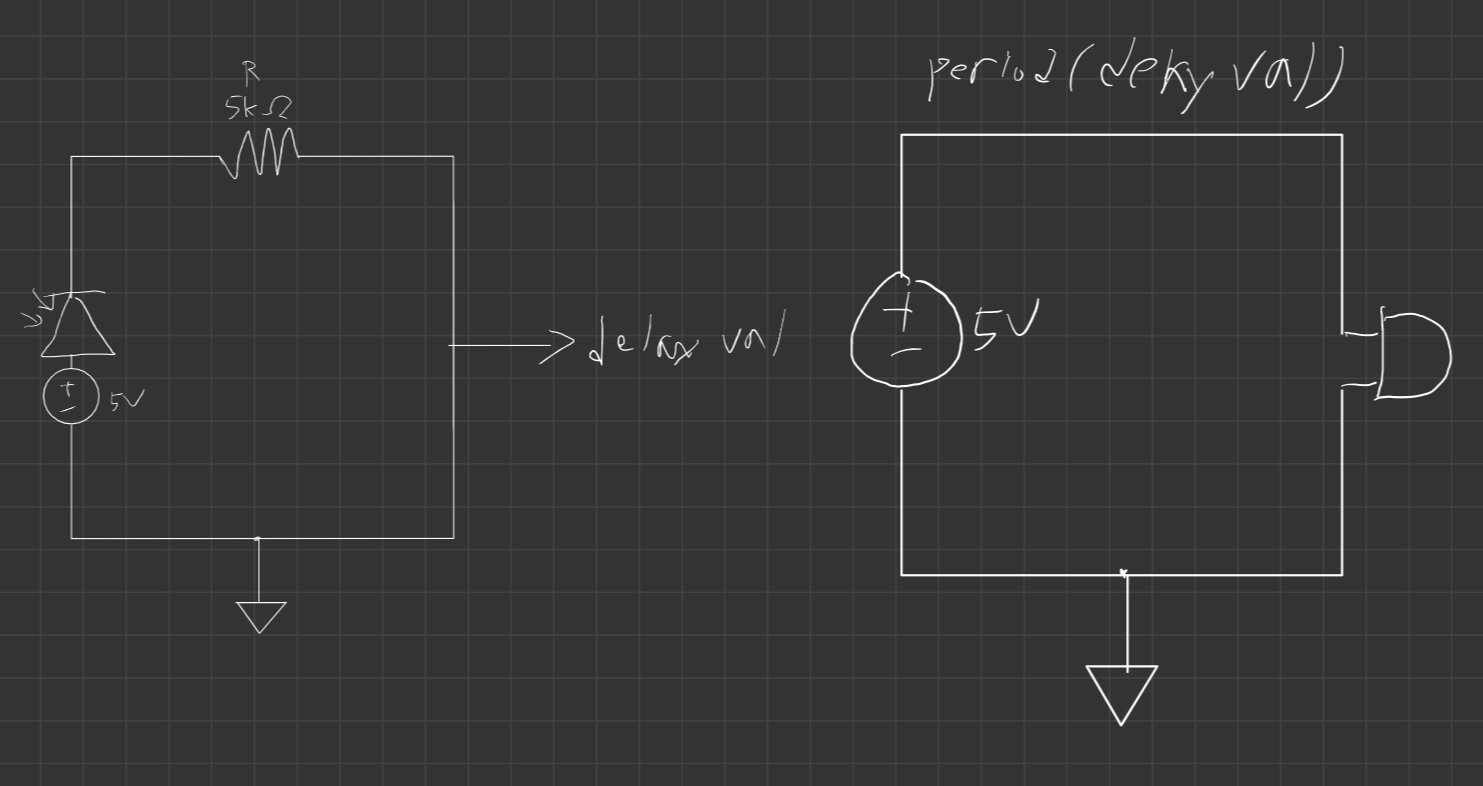 R
5kΩ
+
-
5V
delay val
period(delay val)
+
-
5V